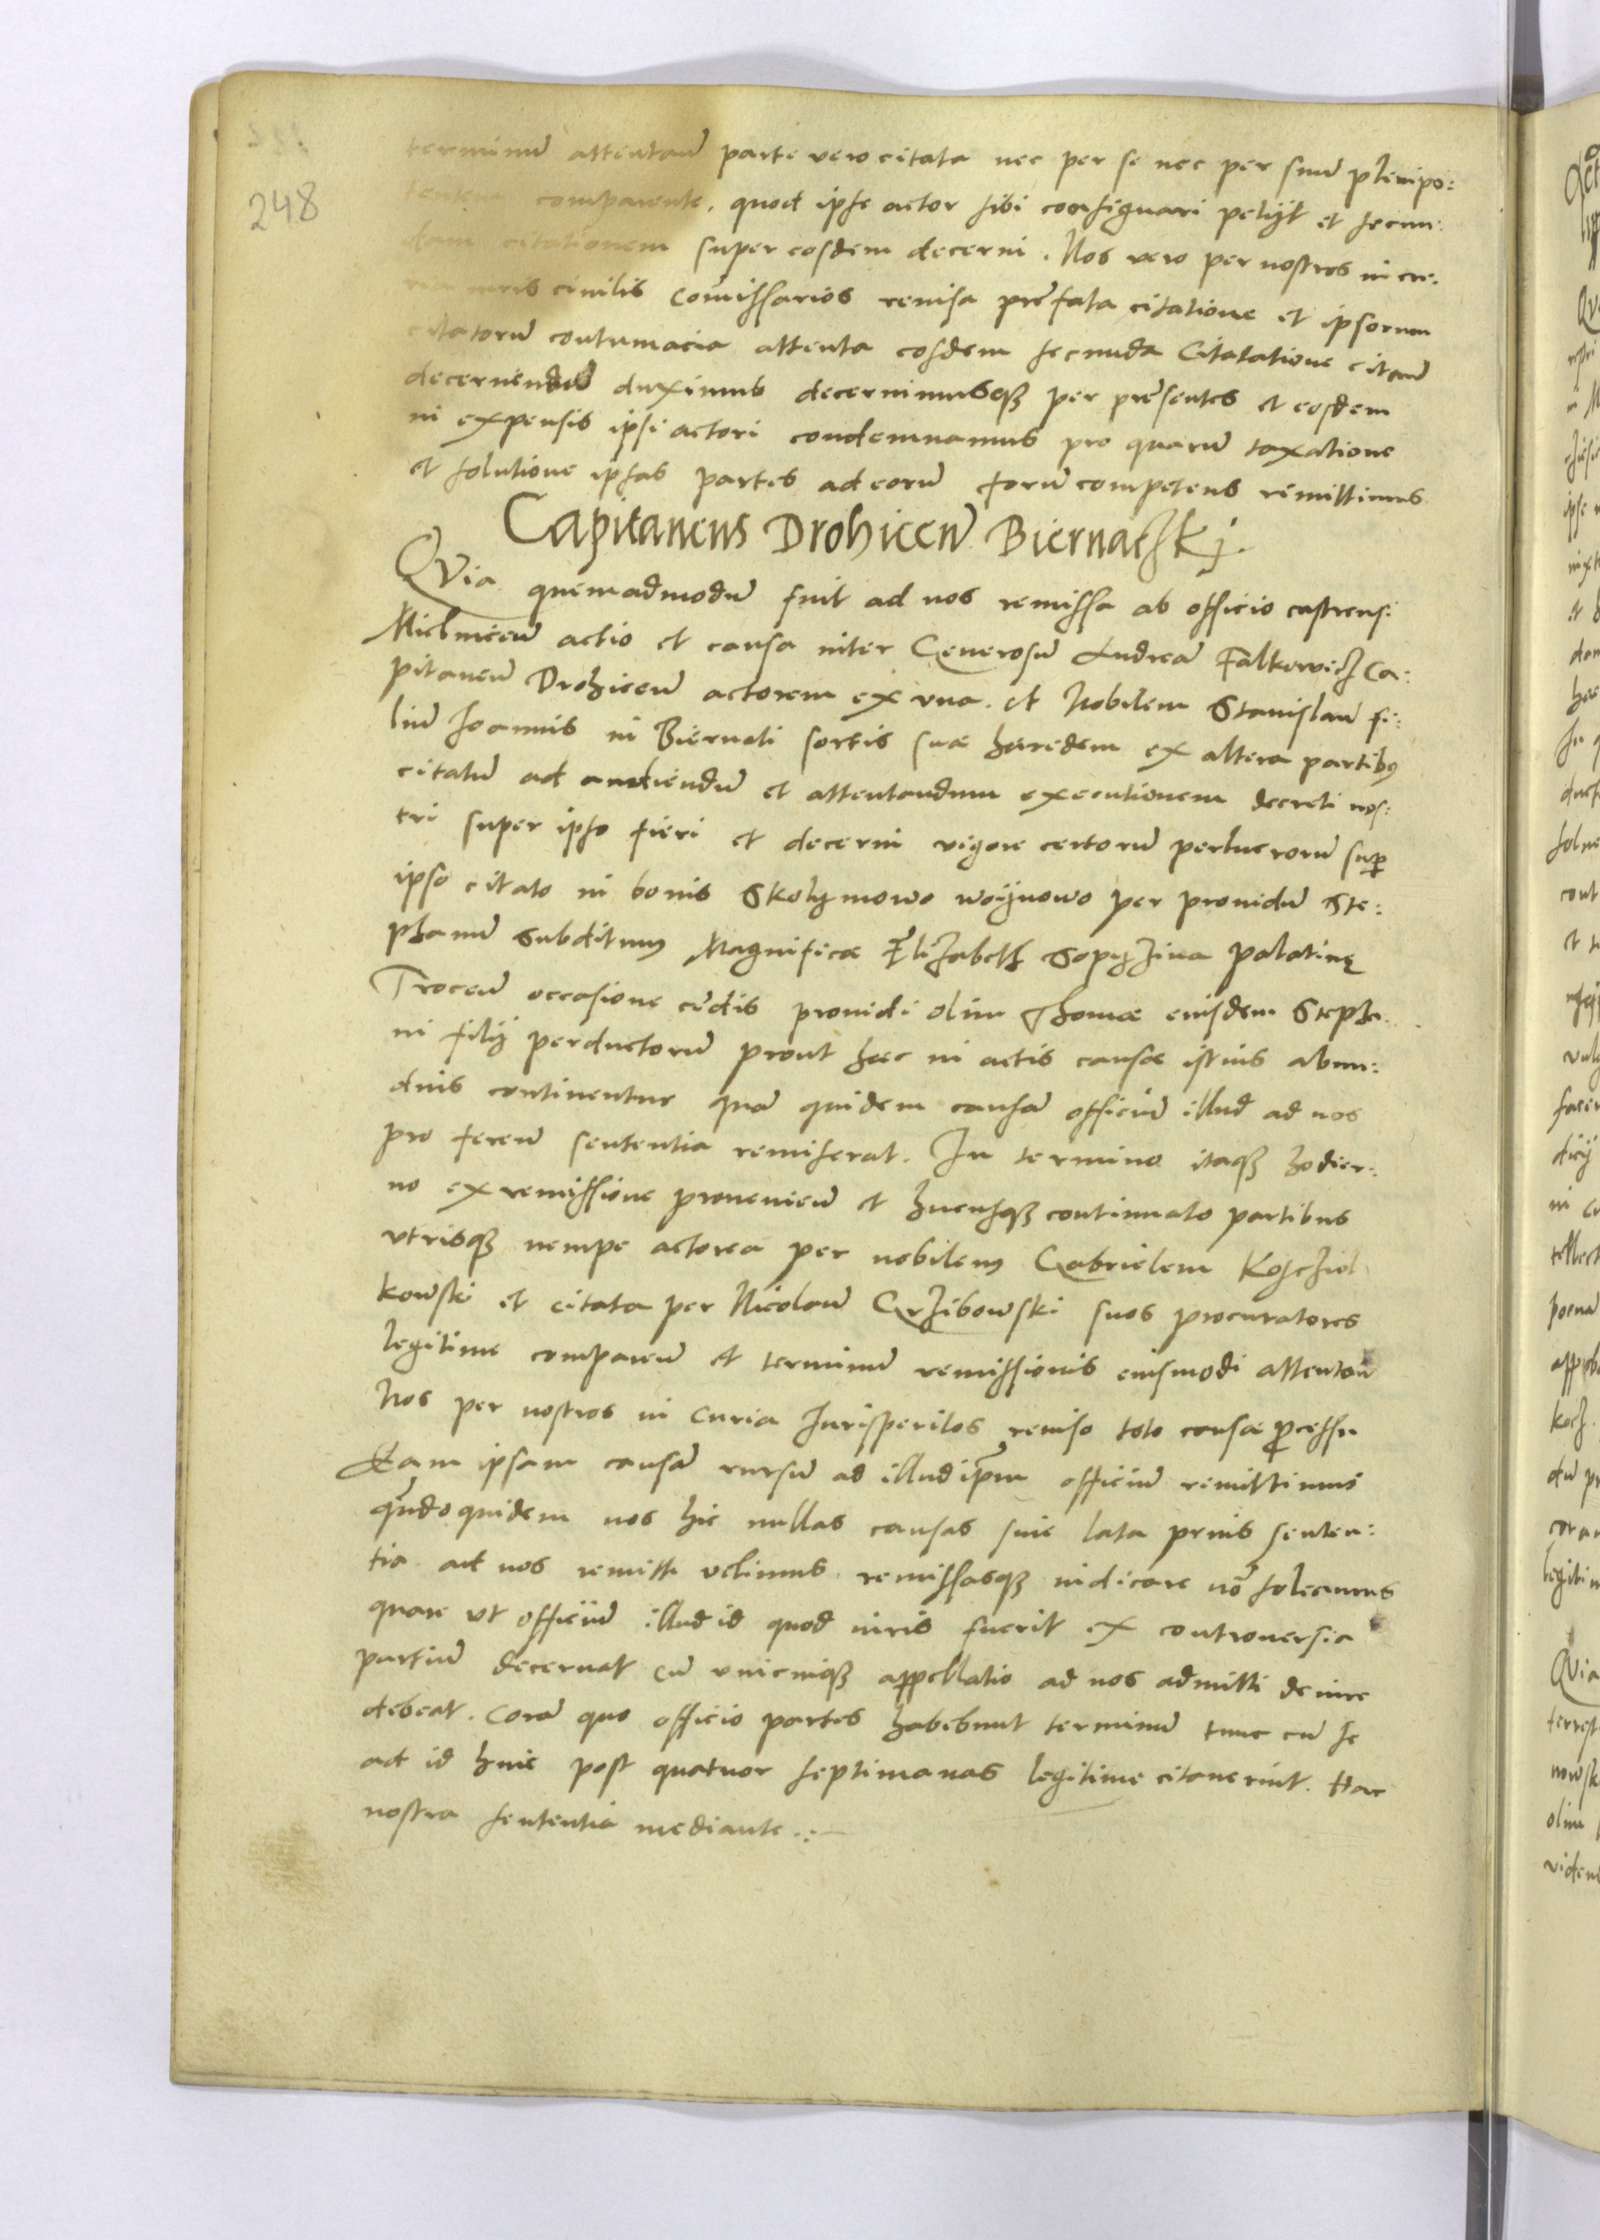 248
terminũ attentan̄ parte vero citata nec per se nec per suũ plenipo:
tentem comparente, quod ipse actor sibi consignari petijt et secun:
dam citationem super eosdem decerni. Nos vero per nostros in cre:
civilis Com̃issarios revisa prefata citatione et ipsorum
citatorũ contumacia attenta eosdem secunda Citatatione citan̄
decernendũ duximus decernimusq3 per presentes et eosdem
in expensis ipsi actori condemnamus pro quarũ taxatione
et solutione ipsas partes ad eorũ forũ competens remittimus
Capitaneus Drohicen̄ Biernaczkj.
QVia quemadmodũ fuit ad nos remissa ab officio castrens:
Mielnicen̄ actio et causa inter Generosũ Andreã Falkowicz Ca:
pitaneũ Drohicen̄ actorem ex vna. et Nobilem Stanislaũ fi:
liũ Joannis in Biernati sortis suæ hæredem ex altera partibus
citatũ ad audiendũ et attentandum executionem decreti nos:
tri super ipso fieri et decerni vigore certorũ perlucrorũ super
ipso citato in bonis Skolymowo woynowo per providũ Ste:
phanũ Subditum Magnificæ Elizabeth Sapyzina palatinę
Trocen̄ occasione cędis providi olim Thomæ eiusdem Stepha
ni filij perductorũ prout hæc in actis causæ istius abun:
dius continentur quã quidem causã officiũ illud ad nos
pro feren̄ sententia remiserat. In termino itaq3 hodier:
no ex remissione provenien̄ et hucusq3 continuato partibus
vtrisq3 nempe actorea per nobilem Gabrielem Koscziol
kowski et citata per Nicolaũ Grzibowski suos procuratores
legitime comparen̄ et terminũ remissionis eiusmodi attentan̄
Nos per nostros in Curia Jurisperitos reviso toto causæ processu
Eam ipsam causã rursũ ad illud ipsum officiũ remittimus
quandoquidem nos hic nullas causas sine lata prius senten:
tia ad nos remitti velimus remissasq3 iudicare nõ solemus
quare vt officiũ illud id quod iuris fuerit ex controversia
partiũ decernat cũ vnicuiq3 appellatio ad nos admitti de iure
debeat. Corã quo officio partes habebunt terminũ tunc cũ se
ad id huic post quatuor septimanas legitime citaverint. Hac
nostra sententia mediante.:—